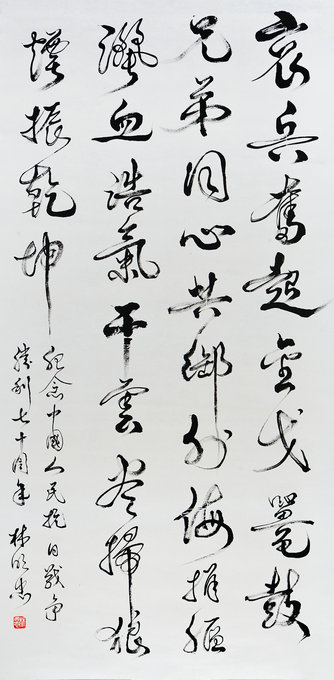 哀兵奮起金戈鼉鼓
兄弟同心共御外侮捐軀
濺血浩氣干雲尽掃狼
煙振乾坤
紀念中國人民抗日戰争
勝利七十周年 林